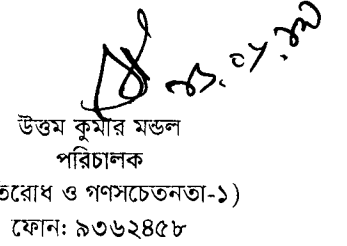 উত্তম কুমার মন্ডল
পরিচালক
তিরোধ ও গণসচেতনতা-১)
ফোন: ৯৩৬২৪৫৮